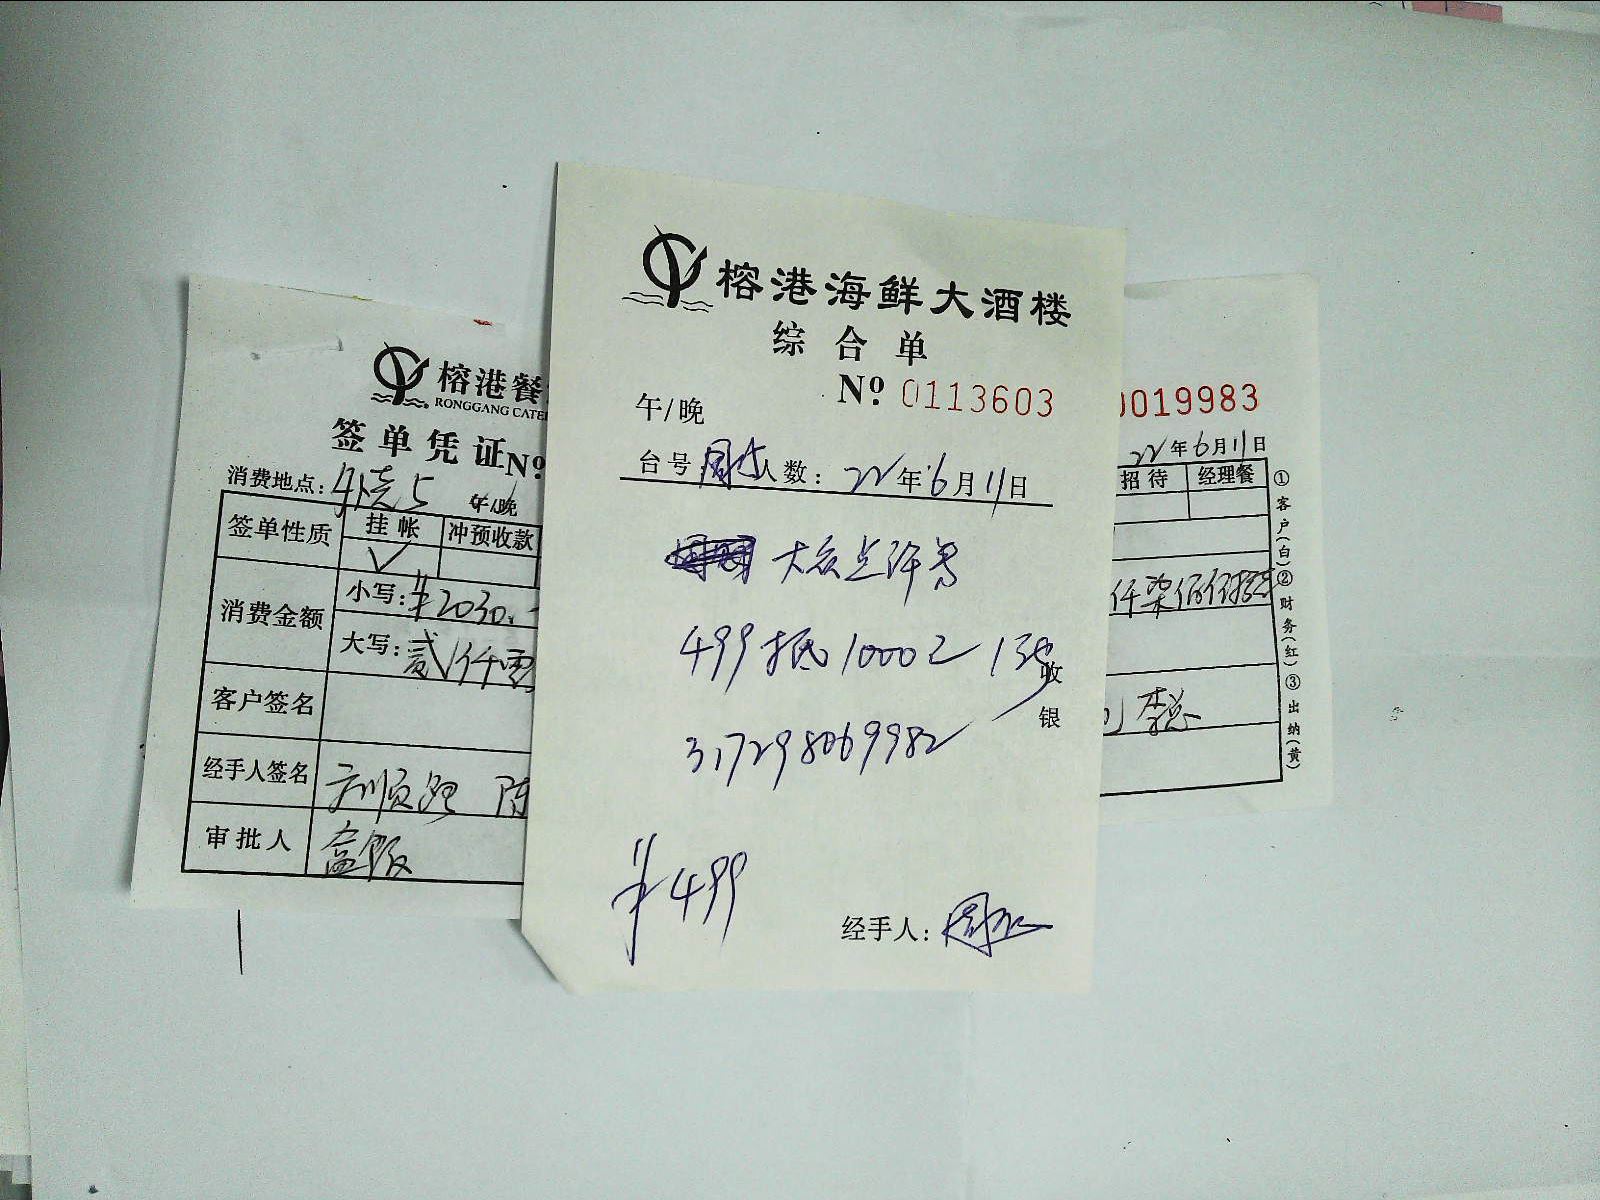 榕港海鲜大酒楼
综合单
No. 0113603
午/晚
台号 人数: 22年6月11日
大众点评券
499抵1000元 1张
收银
317298069982
¥499
经手人: 周
榕港餐
RONGGANG CATE
签单凭证No.
消费地点: 午/晚
签单性质 挂帐 冲预收款
✓
消费金额 小写: ¥2030.-
大写: 贰仟零
客户签名
经手人签名 陈
审批人 盒饭
0019983
22年6月11日
招待 经理餐
仟柒佰伍拾
李总
①客户(白)②财务(红)③出纳(黄)